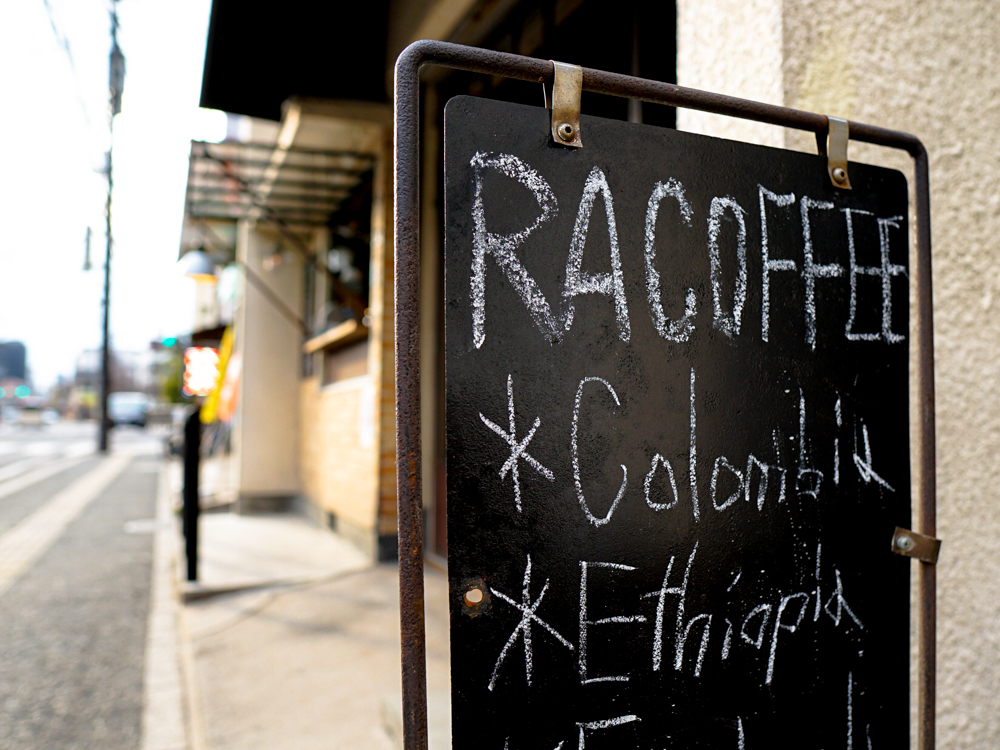 RACOFFEE
*Colombia
*Ethiopia